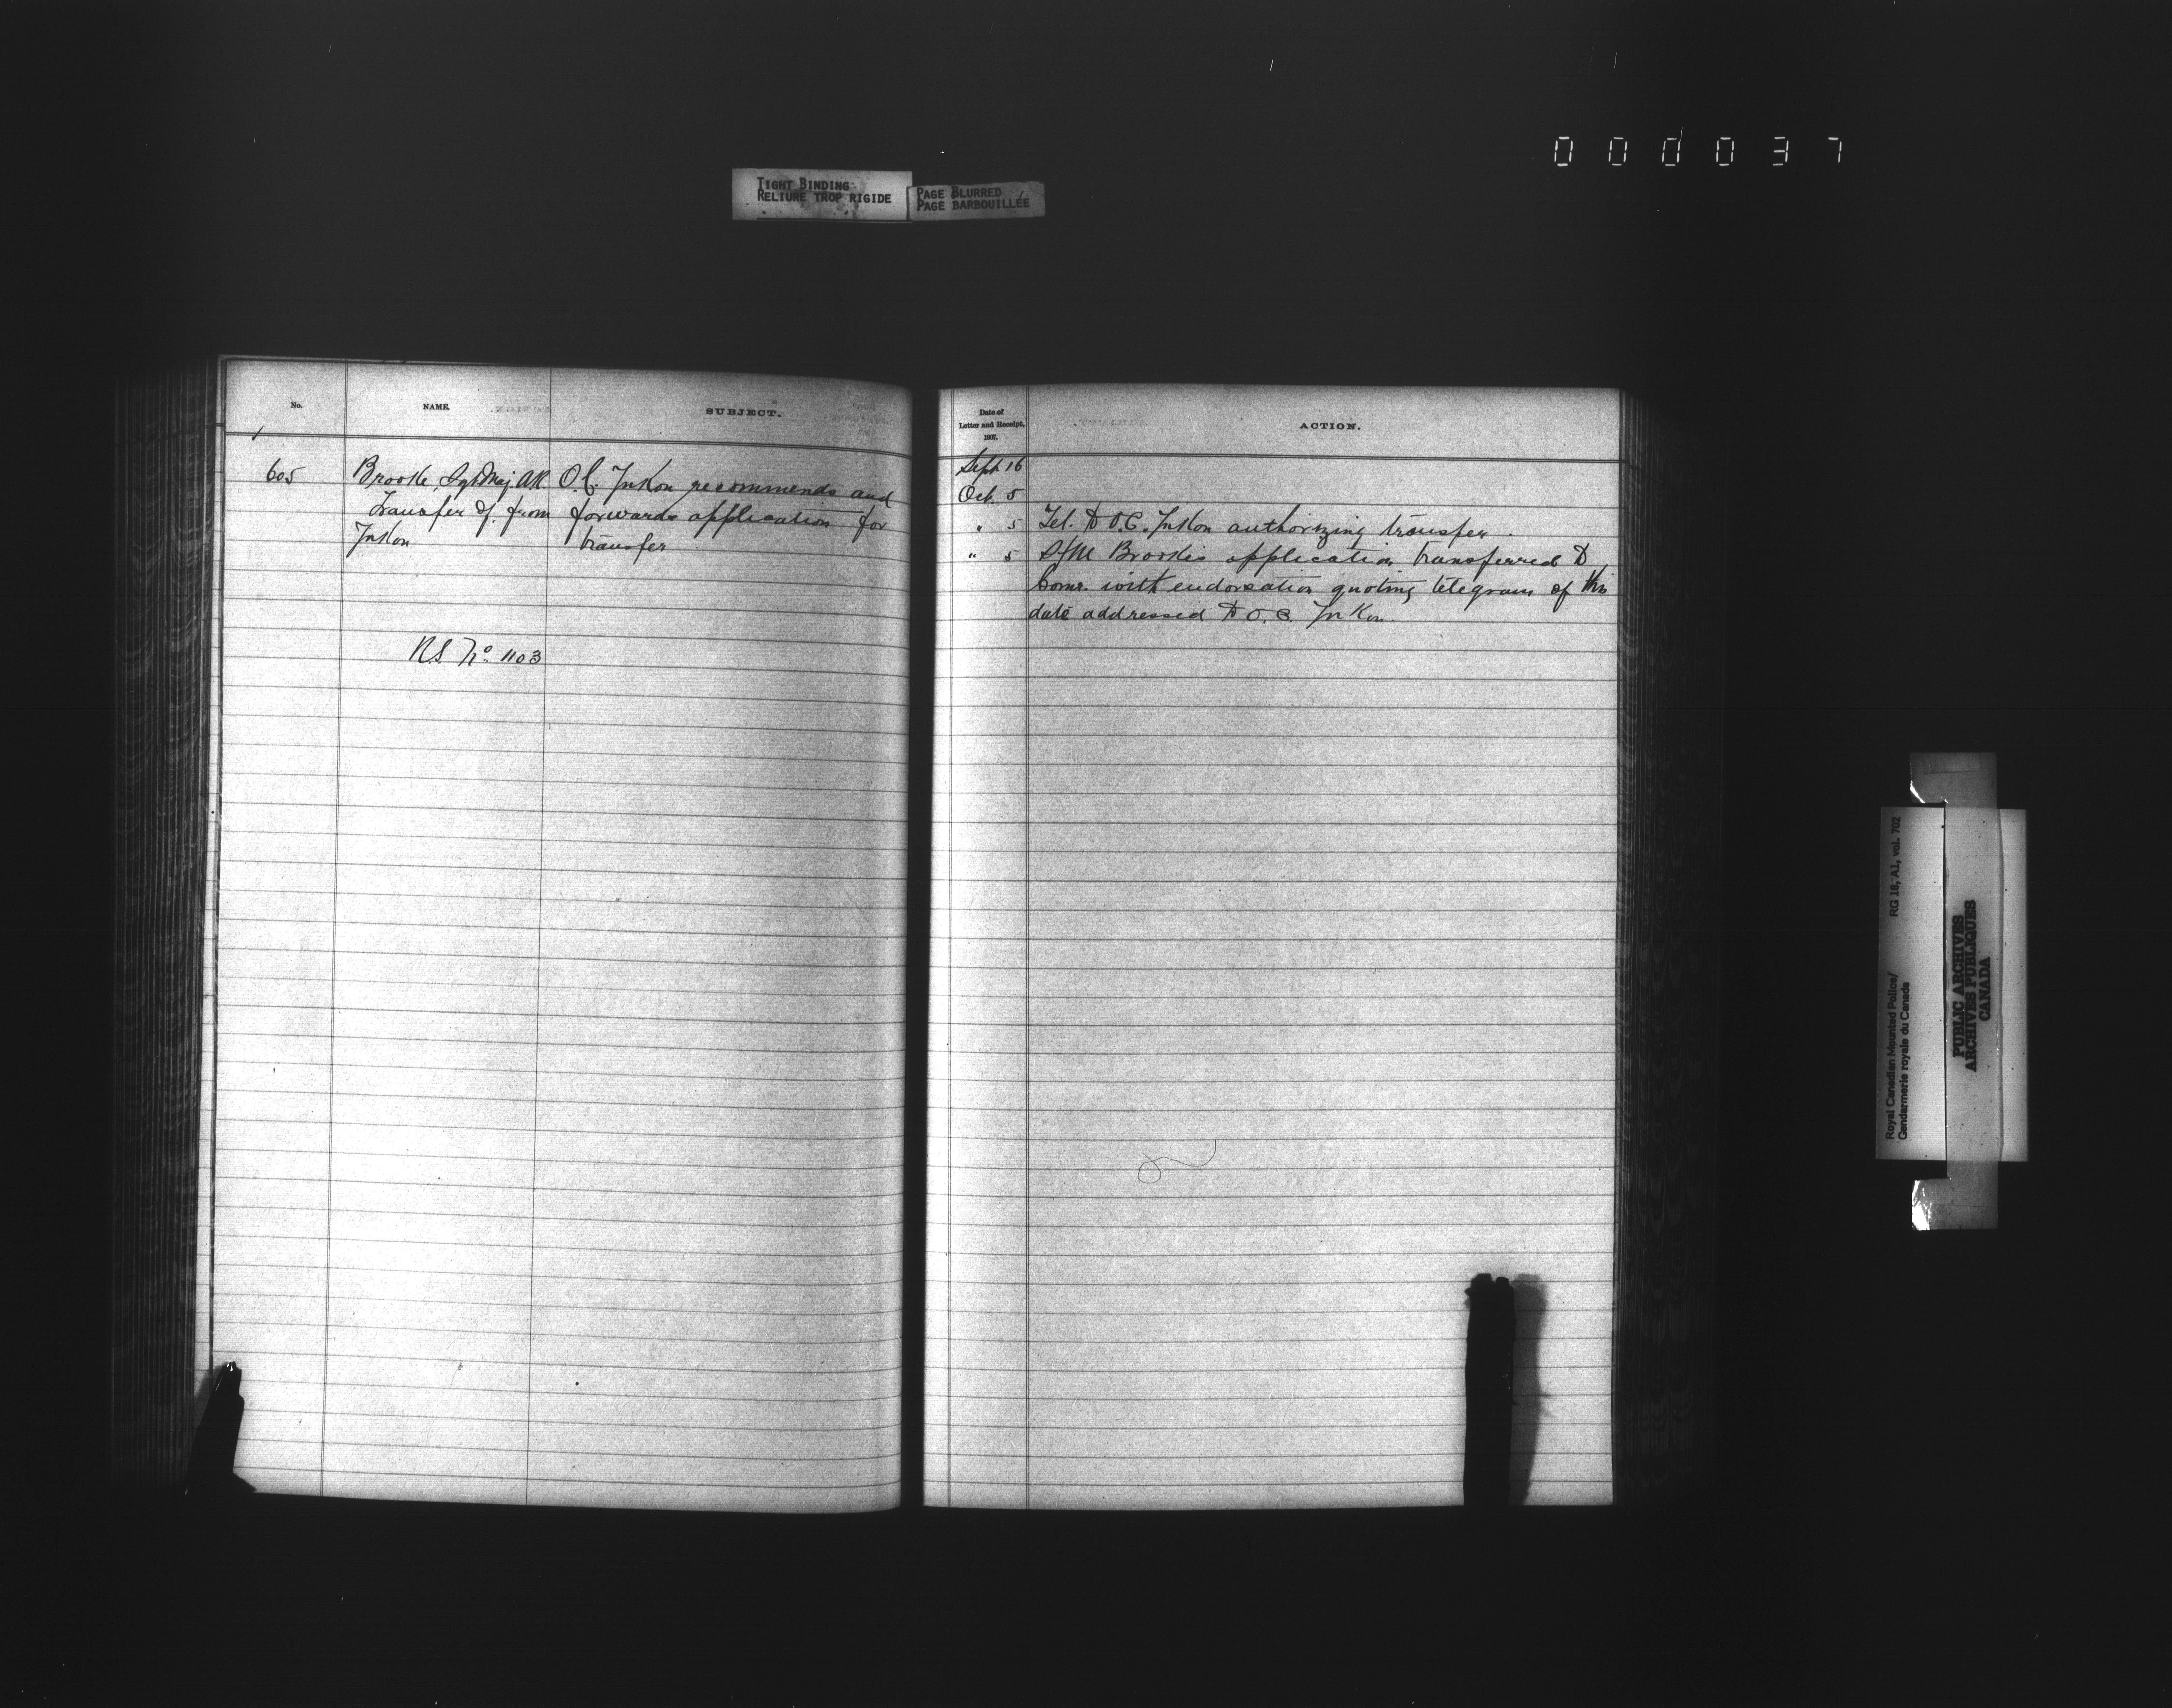 000037
TIGHT BINDING
RELIURE TROP RIGIDE
PAGE BLURRED
PAGE BARBOUILLÉE
No.
NAME.
SUBJECT.
605
Brooke, Sgt Maj. AR
Transfer of from
Yukon
O.C. Yukon recommends and
forwards application for
transfer
RS No. 1103
Date of
Letter and Receipt,
1907.
ACTION.
Sept 16
Oct. 5
" 5 Tel. to O.C. Yukon authorizing transfer.
" 5 S/M Brooke's application transferred to
Comr. with endorsation quoting telegram of this
date addressed to O.C. Yukon.
Royal Canadian Mounted Police/
Gendarmerie royale du Canada
RG 18, A1, vol. 702
PUBLIC ARCHIVES
ARCHIVES PUBLIQUES
CANADA